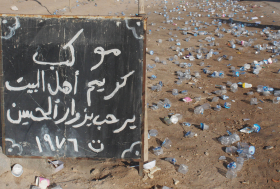 موكب
كريم أهل البيت
يرحب بزوار الحسن
ت ١٩٧٦